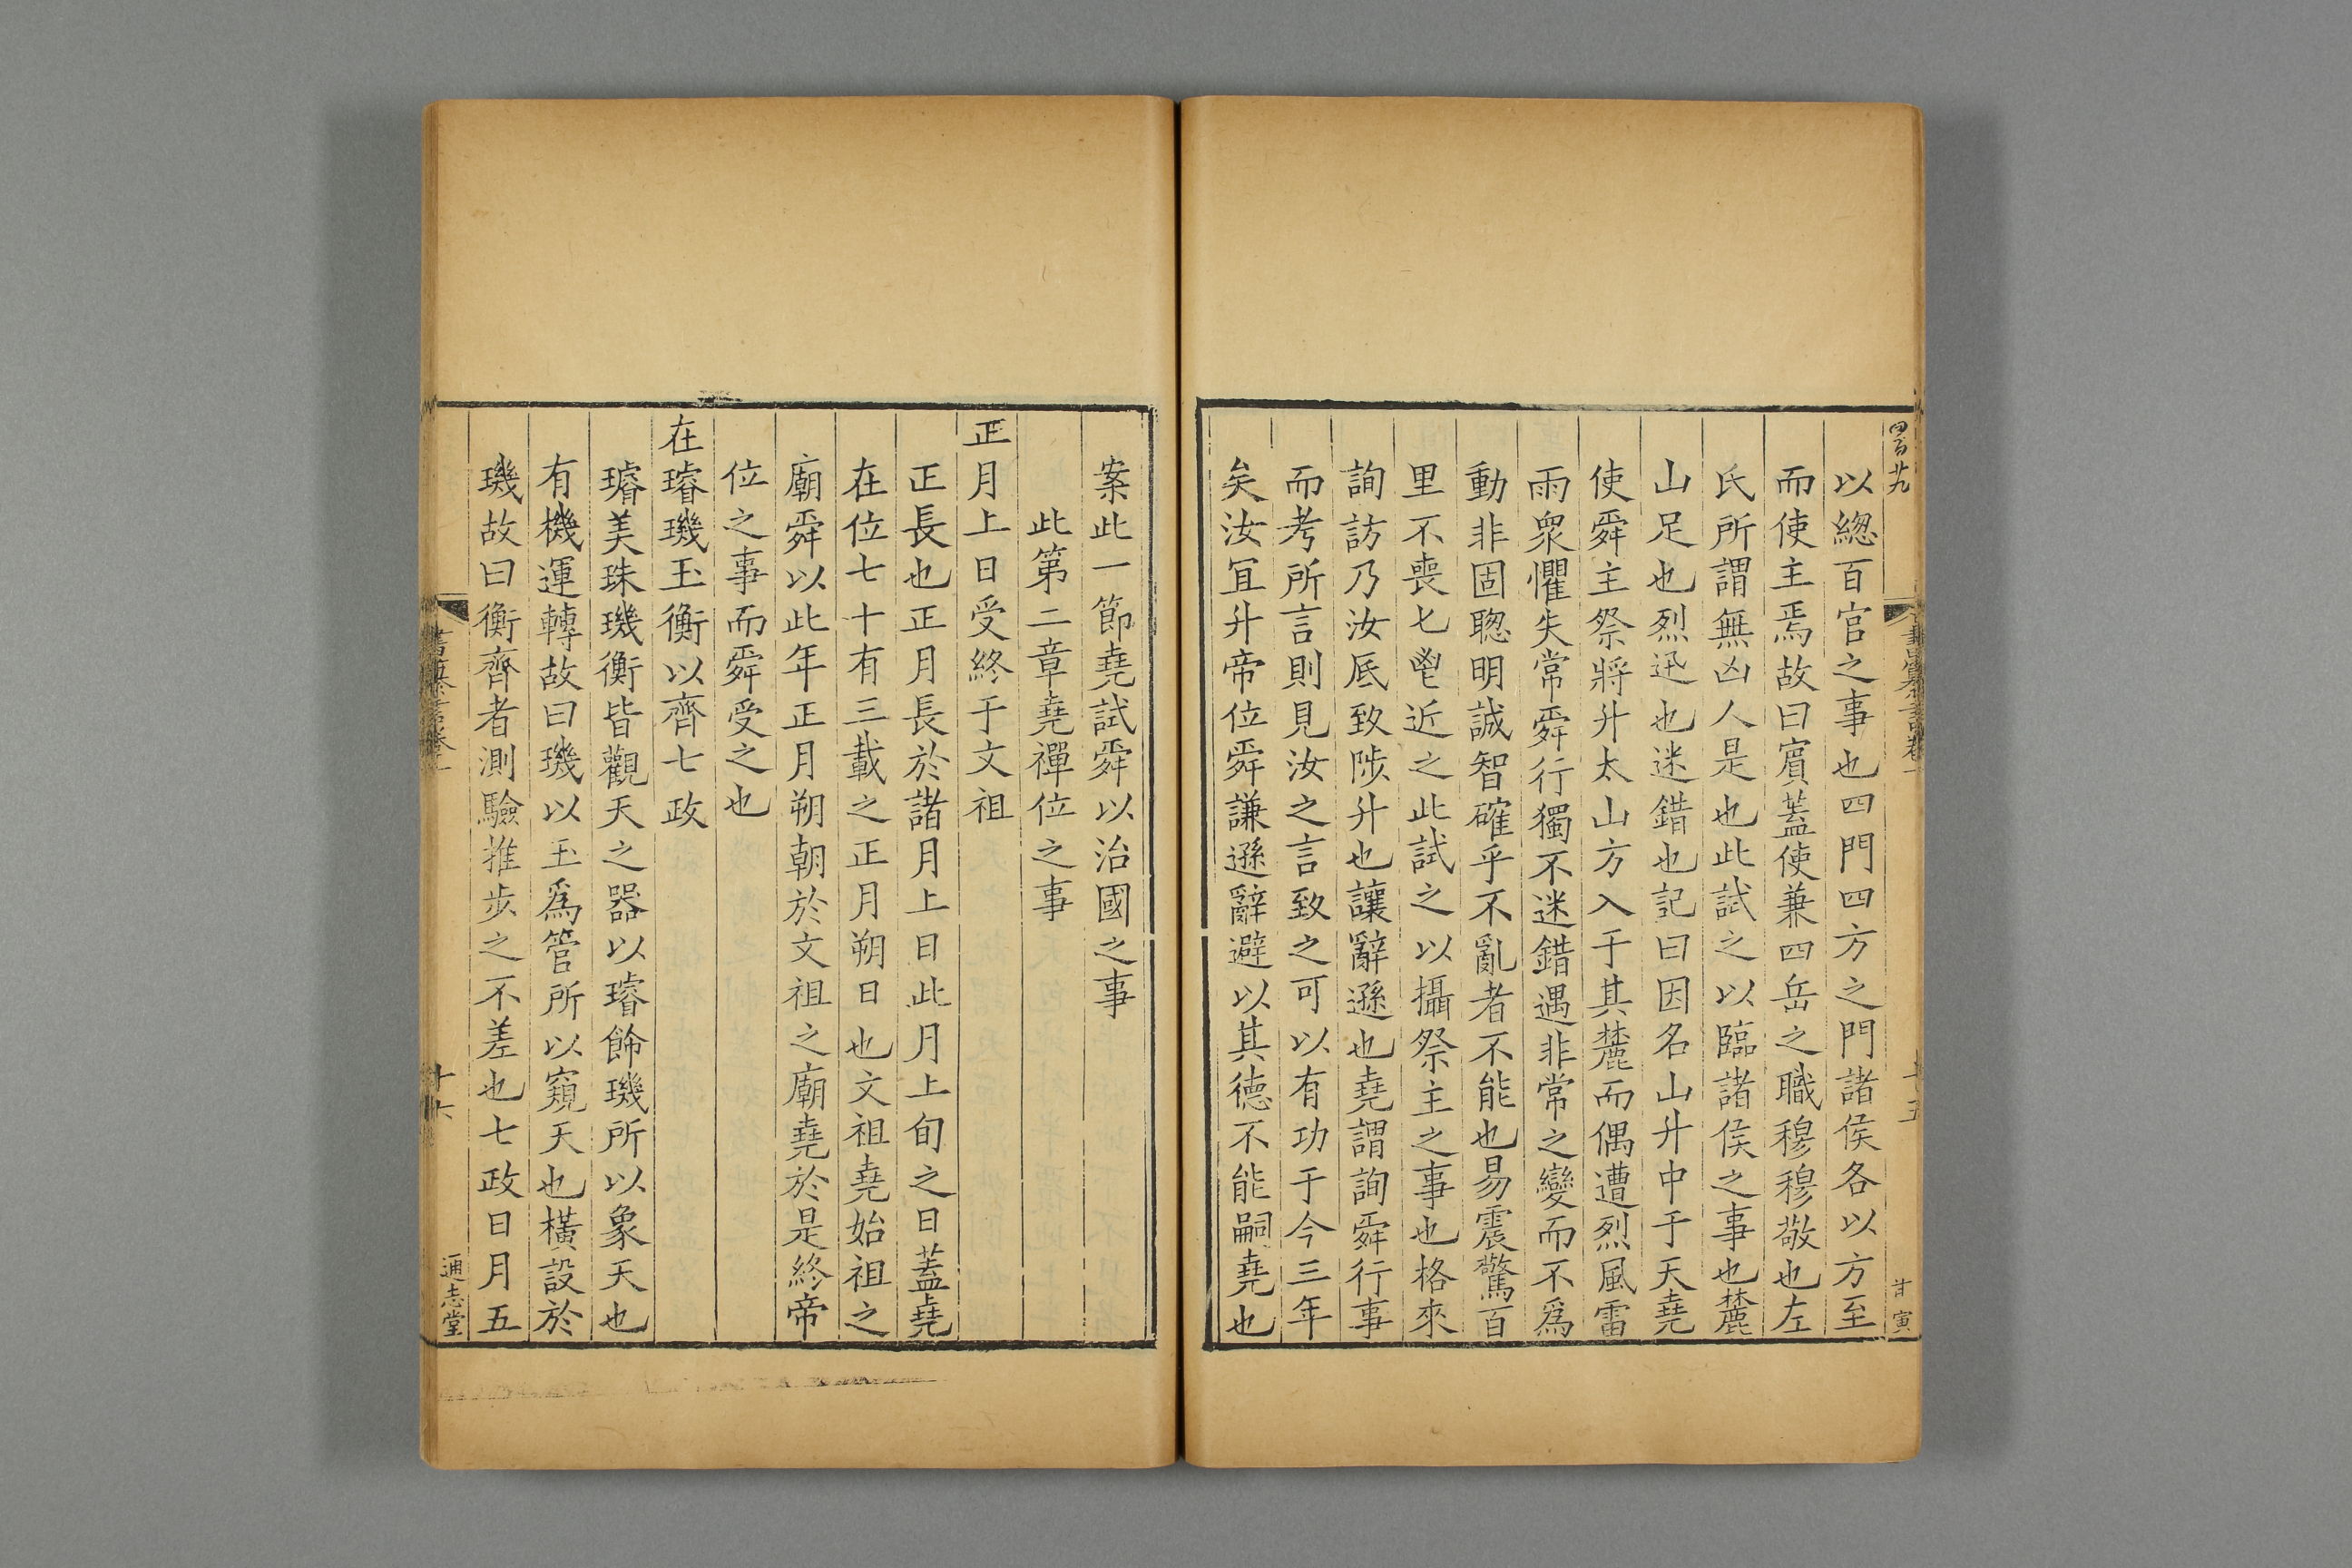 四百廿九
十五
甘寅
以緫百官之事也四門四方之門諸侯各以方至
而使主焉故曰賔蓋使兼四岳之職穆穆敬也左
氏所謂無凶人是也此試之以臨諸侯之事也麓
山足也烈迅也迷錯也記曰因名山升中于天堯
使舜主祭將升太山方入于其麓而偶遭烈風雷
雨衆懼失常舜行獨不迷錯遇非常之變而不爲
動非固聦明誠智確乎不亂者不能也易震驚百
里不喪匕鬯近之此試之以攝祭主之事也格來
詢訪乃汝底致陟升也讓辭遜也堯謂詢舜行事
而考所言則見汝之言致之可以有功于今三年
矣汝冝升帝位舜謙遜辭避以其德不能嗣堯也
案此一節堯試舜以治國之事
此第二章堯禪位之事
正月上日受終于文祖
正長也正月長於諸月上日此月上旬之日蓋堯
在位七十有三載之正月朔日也文祖堯始祖之
廟舜以此年正月朔朝於文祖之廟堯於是終帝
位之事而舜受之也
在璿璣玉衡以齊七政
璿美珠璣衡皆觀天之器以璿餙璣所以象天也
有機運轉故曰璣以玉爲管所以窺天也橫設於
璣故曰衡齊者測驗推步之不差也七政日月五
十六
通志堂